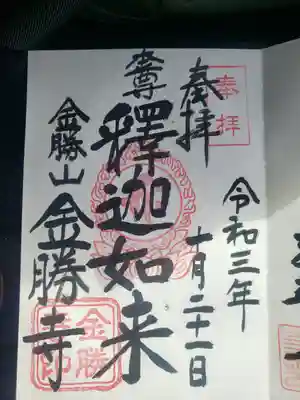 奉拝
奉拝
令和三年
十月二十一日
本尊
釋迦如来
金勝山
金勝寺
金勝寺印